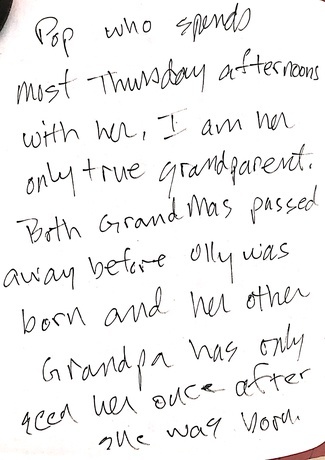 Pop who spends
most Thursday afternoons
with her, I am her
only true grandparent.
Both GrandMas passed
away before Olly was
born and her other
Grandpa has only
seen her once after
she was born.